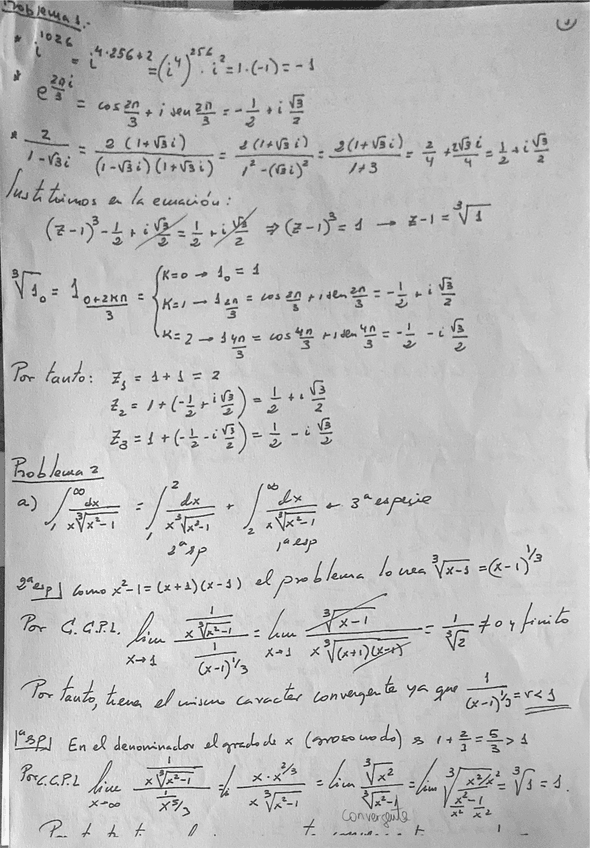 Problema 1.-
* i^1026 = i^(4·256+2) = (i^4)^256 · i^2 = 1·(-1) = -1
* e^(2πi/3) = cos 2π/3 + i sen 2π/3 = -1/2 + i √3/2
* 2/(1-√3i) = 2(1+√3i)/((1-√3i)(1+√3i)) = 2(1+√3i)/(1²-(√3i)²) = 2(1+√3i)/(1+3) = 2/4 + 2√3i/4 = 1/2 + i √3/2
Sustituimos en la ecuación:
(z-1)³ - 1/2 + i √3/2 = 1/2 + i √3/2 ⇒ (z-1)³ = 1 → z-1 = ∛1
∛1₀ = 1_((0+2kπ)/3) = { K=0 → 1₀ = 1
K=1 → 1_(2π/3) = cos 2π/3 + i sen 2π/3 = -1/2 + i √3/2
K=2 → 1_(4π/3) = cos 4π/3 + i sen 4π/3 = -1/2 - i √3/2
Por tanto: Z₁ = 1+1 = 2
Z₂ = 1 + (-1/2 + i √3/2) = 1/2 + i √3/2
Z₃ = 1 + (-1/2 - i √3/2) = 1/2 - i √3/2
Problema 2
a) ∫₁^∞ dx/(x∛(x²-1)) = ∫₁² dx/(x∛(x²-1)) + ∫₂^∞ dx/(x∛(x²-1)) ← 3ª especie
2ª esp 1ª esp
2ª esp] como x²-1 = (x+1)(x-1) el problema lo crea ∛(x-1) = (x-1)^(1/3)
Por C.C.P.L. lim x→1 (1/(x∛(x²-1)))/(1/(x-1)^(1/3)) = lim x→1 ∛(x-1)/(x∛((x+1)(x-1))) = 1/∛2 ≠ 0 y finito
Por tanto, tienen el mismo caracter convergente ya que 1/(x-1)^(1/3) = r<1
1ª esp] En el denominador el grado de x (grosso modo) es 1 + 2/3 = 5/3 > 1
Por C.C.P.L lim x→∞ (1/(x∛(x²-1)))/(1/x^(5/3)) = l x·x^(2/3)/(x∛(x²-1)) = lim ∛x²/∛(x²-1) = lim ∛((x²/x²)/(x²/x² - 1/x²)) = ∛1 = 1.
convergente